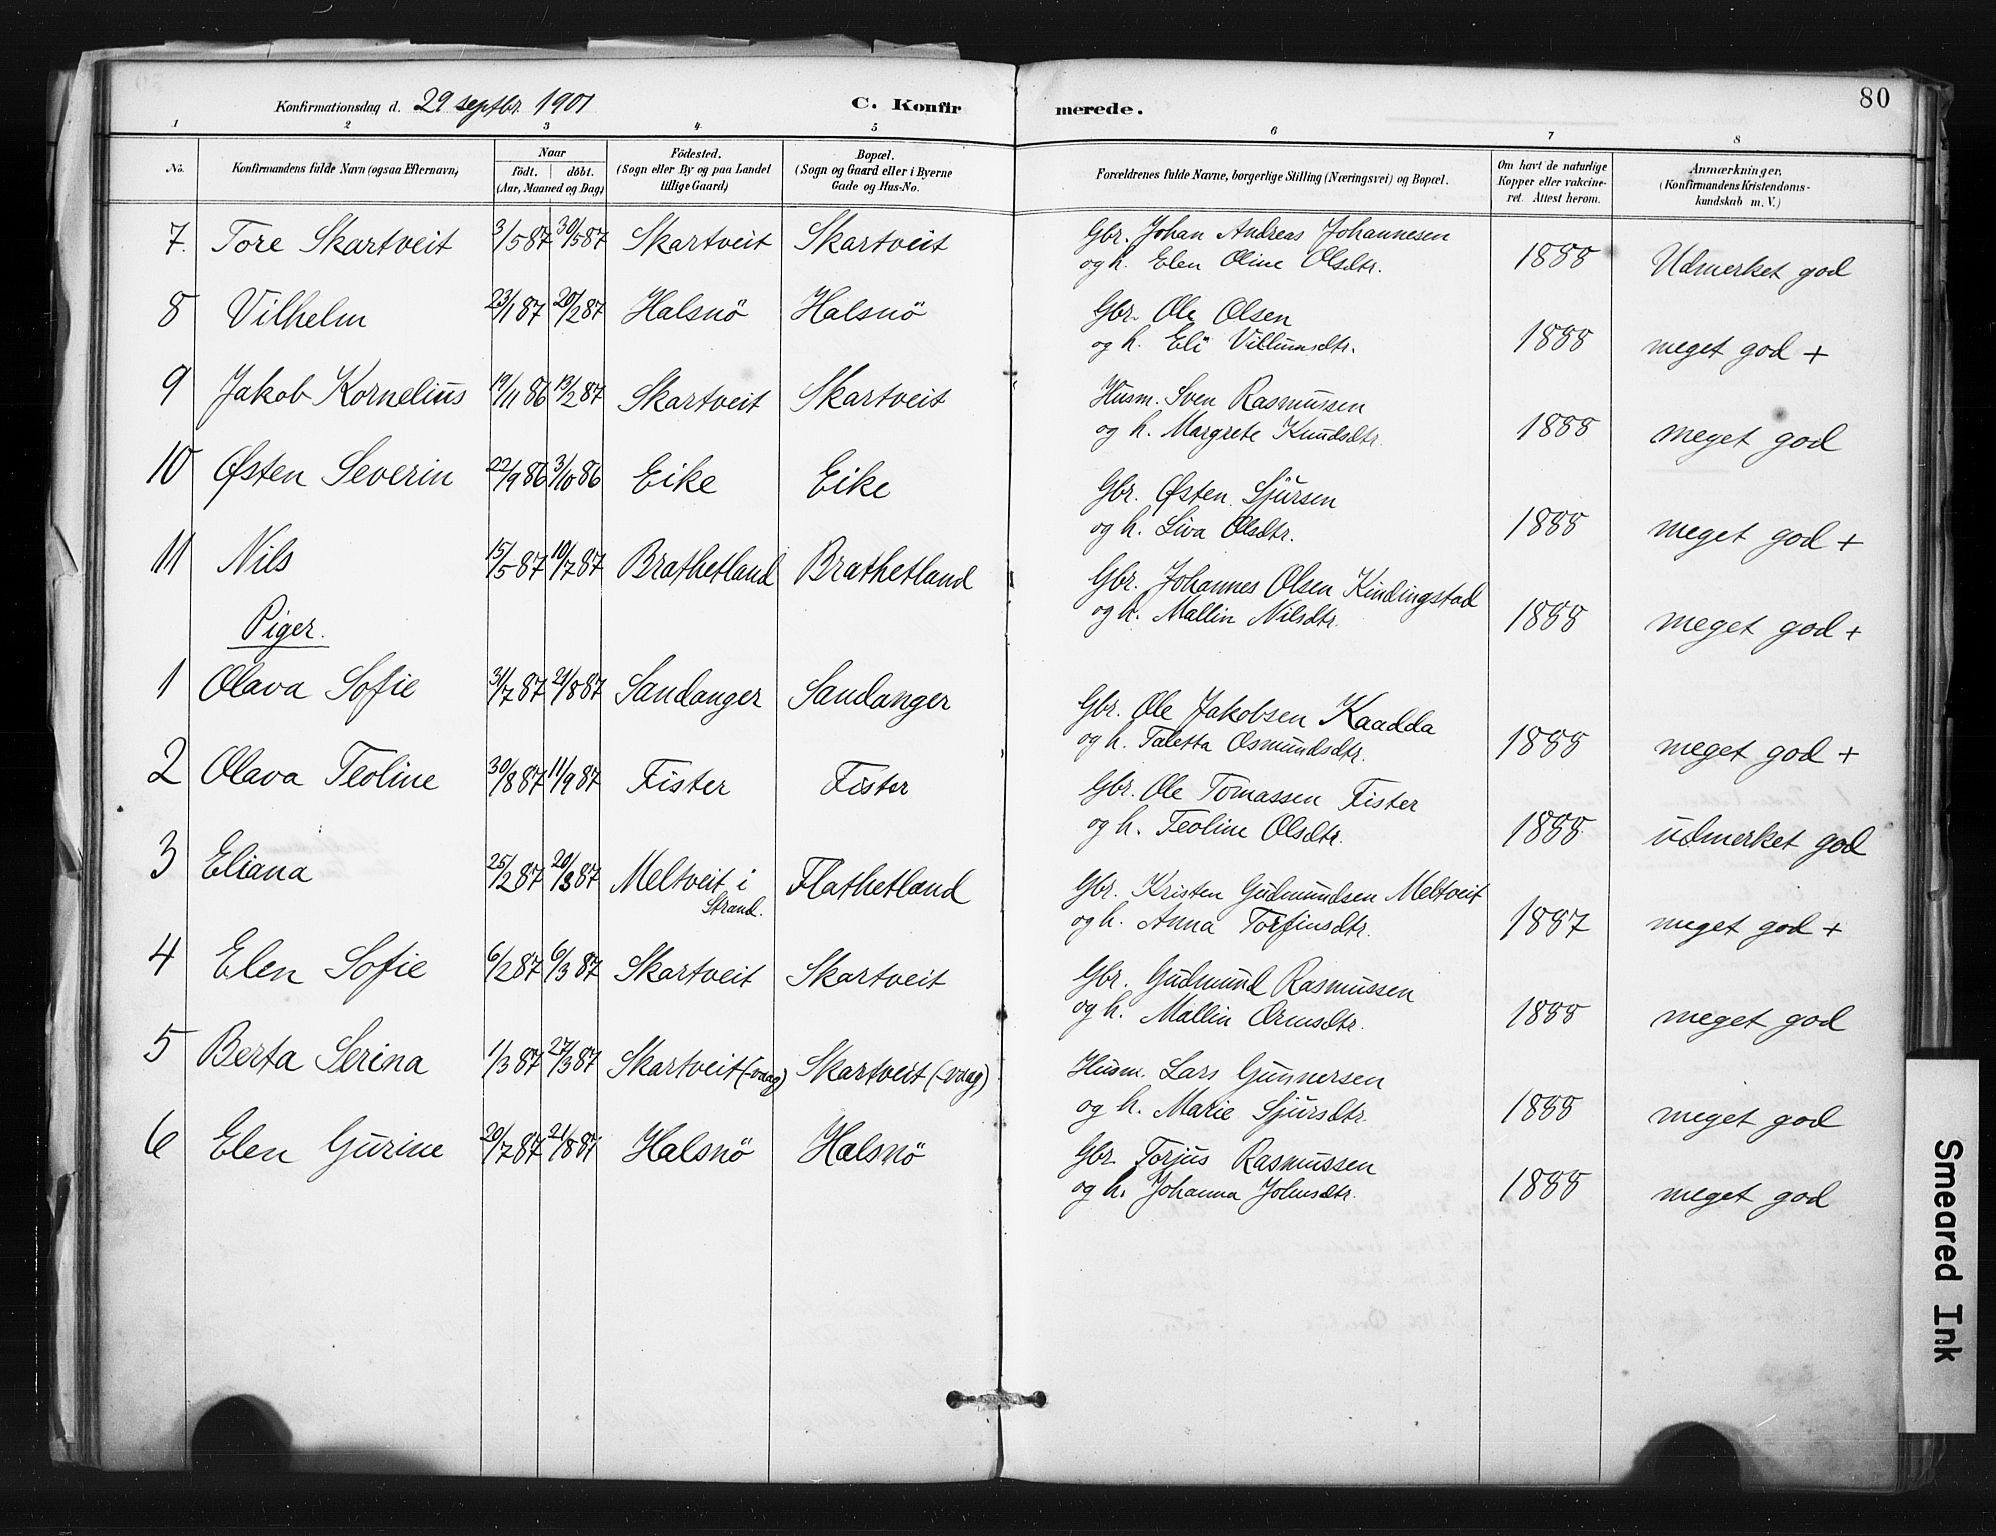 80
Konfirmationsdag d. 29 septbr. 1901 C. Konfirmerede.
1 2 3 4 5 6 7 8
No. Konfirmandens fulde Navn (ogsaa Efternavn) Naar født. døbt. (Aar, Maaned og Dag) Födested. (Sogn eller By og paa Landet tillige Gaard) Bopæl. (Sogn og Gaard eller i Byerne Gade og Hus-No. Forældrenes fulde Navne, borgerlige Stilling (Næringsvei) og Bopæl. Om havt de naturlige Kopper eller vakcineret. Attest herom. Anmærkninger. (Konfirmandens Kristendomskundskab m. V.)
7. Tore Skartveit 3/5 87 30/5 87 Skartveit Skartveit Gbr. Johan Andreas Johannesen
og h. Elen Oline Olsdtr. 1888 Udmerket god
8 Vilhelm 23/1 87 20/2 87 Halsnö Halsnö Gbr. Ole Olsen
og h. Eli Villumsdtr. 1888 meget god +
9 Jakob Kornelius 19/11 86 13/2 87 Skartveit Skartveit Husm. Sven Rasmussen
og h. Margrete Knudsdtr. 1888 meget god
10 Østen Severin 22/9 86 3/10 86 Eike Eike Gbr. Østen Sjursen
og h. Siva Olsdtr. 1888 meget god +
11 Nils 15/5 87 10/7 87 Brathetland Brathetland Gbr. Johannes Olsen Kindingstad
og h. Mallin Nilsdtr. 1888 meget god +
Piger.
1 Olava Sofie 31/7 87 21/8 87 Sandanger Sandanger Gbr. Ole Jakobsen Kaadda
og h. Taletta Osmundsdtr. 1888 meget god +
2 Olava Teoline 30/8 87 11/9 87 Fister Fister Gbr. Ole Tomassen Fister
og h. Teoline Olsdtr. 1888 udmerket god
3 Eliana 25/2 87 20/3 87 Meltveit i Strand. Flathetland Gbr. Kristen Gudmundsen Meltveit
og h. Anna Torfinsdtr. 1887 meget god +
4 Elen Sofie 6/2 87 6/3 87 Skartveit Skartveit Gbr. Gudmund Rasmussen
og h. Mallin Ormsdtr. 1888 meget god
5 Berta Serina 1/3 87 27/3 87 Skartveit (-vaag) Skartveit (-vaag) Husm. Lars Gunnersen
og h. Marie Sjursdtr. 1888 meget god
6 Elen Gurine 20/7 87 21/8 87 Halsnö Halsnö Gbr. Torjus Rasmussen
og h. Johanna Johnsdtr. 1888 meget god
Smeared Ink